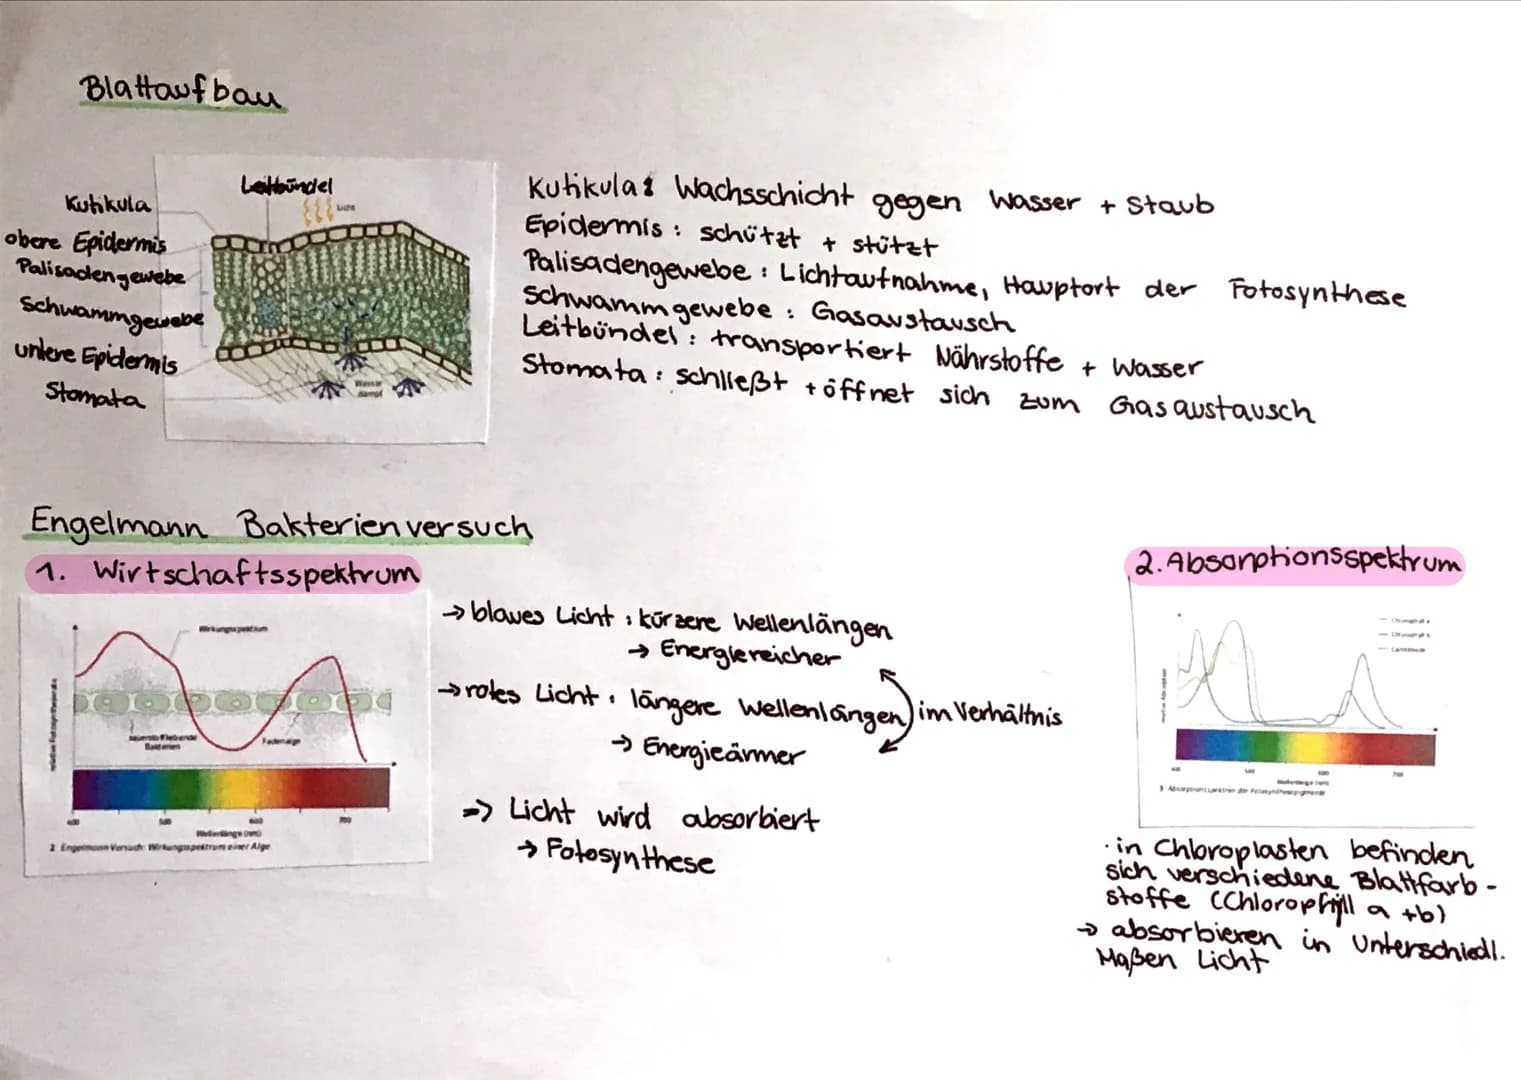 Blattaufbau
Leitbündel
Licht
Kutikula
obere Epidermis
Palisadengewebe
Schwammgewebe
untere Epidermis
Stomata
Wasser
dampf
Kutikula: Wachsschicht gegen Wasser + Staub
Epidermis: schützt + stützt
Palisadengewebe: Lichtaufnahme, Hauptort der Fotosynthese
Schwammgewebe: Gasaustausch
Leitbündel: transportiert Nährstoffe + Wasser
Stomata: schließt + öffnet sich zum Gasaustausch
Engelmann Bakterienversuch
1. Wirtschaftsspektrum
Wirkungsspektrum
sauerstoffliebende
Bakterien
Fadenalge
400 500 600 700
Wellenlänge (nm)
2 Engelmann-Versuch: Wirkungsspektrum einer Alge
→ blaues Licht: kürzere Wellenlängen
→ Energiereicher
→ rotes Licht: längere Wellenlängen) im Verhältnis
→ Energieärmer
=> Licht wird absorbiert
→ Fotosynthese
2. Absorptionsspektrum
Chlorophyll a
Chlorophyll b
Carotinoide
relative Absorption
400 500 600 700
Wellenlänge (nm)
3 Absorptionsspektren der Fotosynthesepigmente
· in Chloroplasten befinden
sich verschiedene Blattfarb-
stoffe (Chlorophyll a +b)
→ absorbieren in unterschiedl.
Maßen Licht